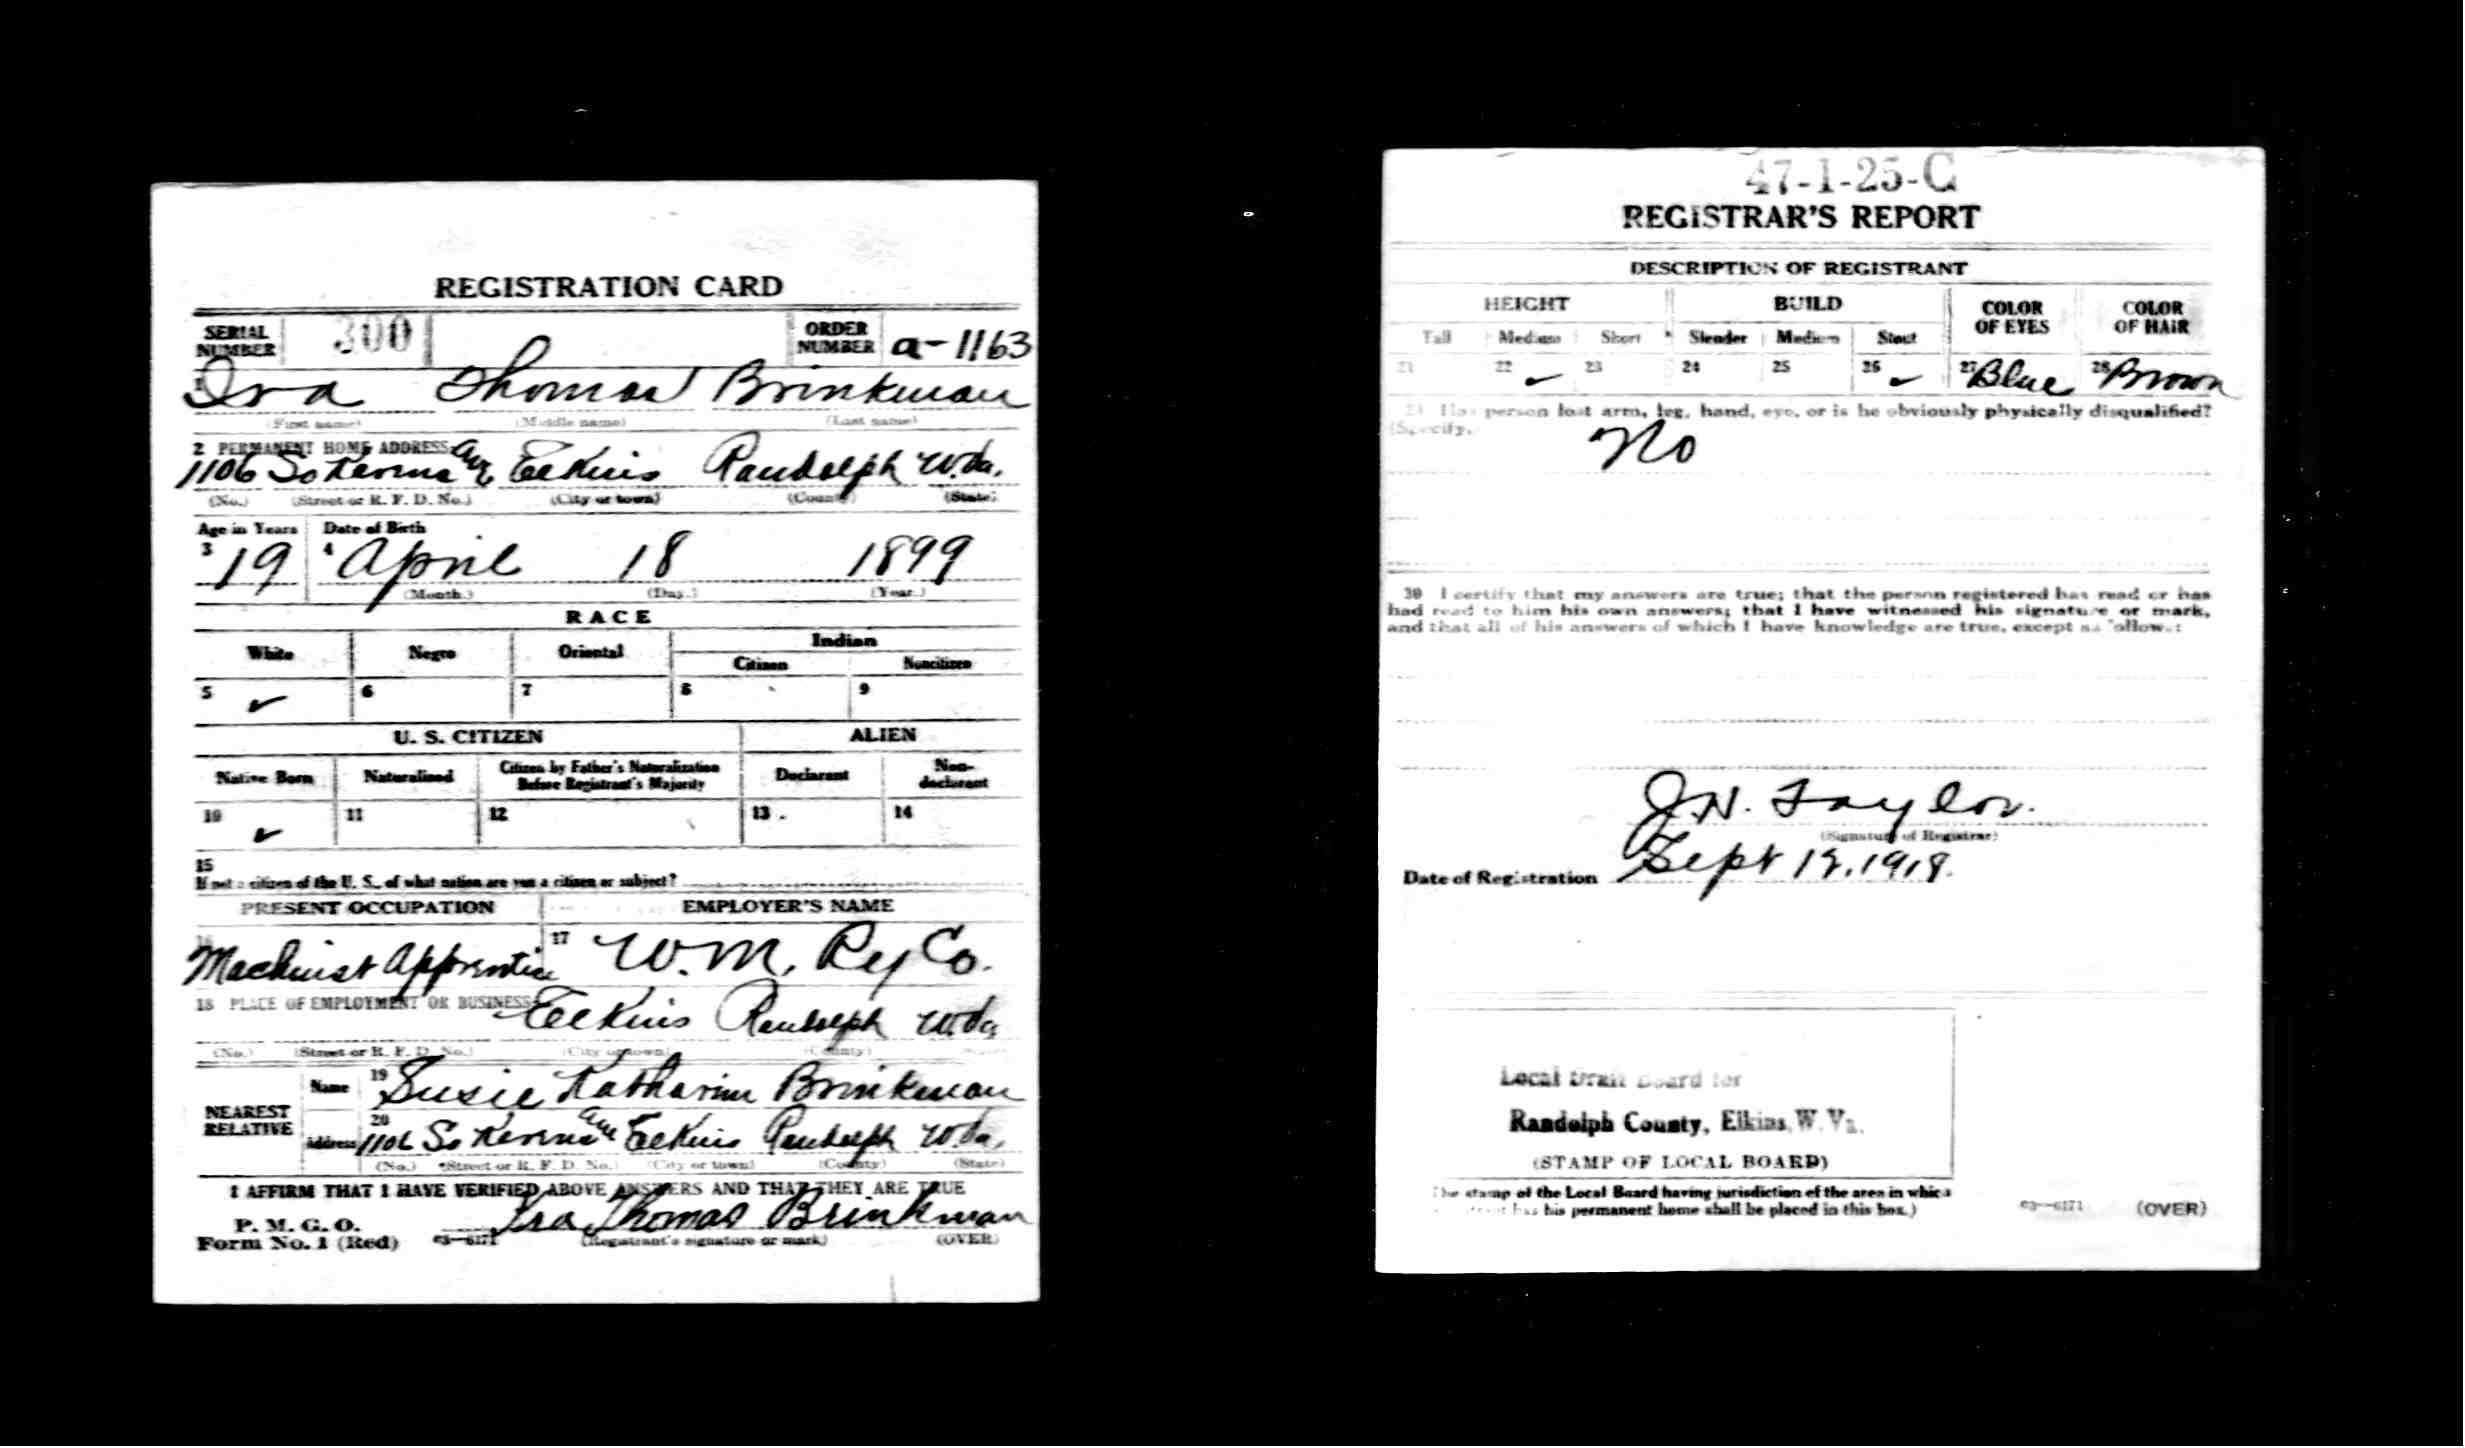 REGISTRATION CARD
SERIAL NUMBER 300 ORDER NUMBER a-1163
1 Ira Thomas Brinkman
(First name) (Middle name) (Last name)
2 PERMANENT HOME ADDRESS
1106 So Kerens Ave Elkins Randolph W.Va.
(No.) (Street or R. F. D. No.) (City or town) (County) (State)
Age in Years Date of Birth
3 19 4 April 18 1899
(Month.) (Day.) (Year.)
RACE
White Negro Oriental Indian
Citizen Noncitizen
5 ✓ 6 7 8 9
U. S. CITIZEN ALIEN
Native Born Naturalized Citizen by Father's Naturalization Before Registrant's Majority Declarant Non-declarant
10 ✓ 11 12 13 14
15
If not a citizen of the U. S., of what nation are you a citizen or subject?
PRESENT OCCUPATION EMPLOYER'S NAME
16 Machinist Apprentice 17 W. M. Ry Co.
18 PLACE OF EMPLOYMENT OR BUSINESS
Elkins Randolph W.Va
(No.) (Street or R. F. D. No.) (City or town) (County)
NEAREST RELATIVE
Name 19 Susie Katharine Brinkman
Address 20 1106 So Kerens Ave Elkins Randolph W.Va.
(No.) (Street or R. F. D. No.) (City or town) (County) (State)
I AFFIRM THAT I HAVE VERIFIED ABOVE ANSWERS AND THAT THEY ARE TRUE
P. M. G. O.
Form No. 1 (Red) 03—6171 Ira Thomas Brinkman
(Registrant's signature or mark) (OVER)
47-1-25-C
REGISTRAR'S REPORT
DESCRIPTION OF REGISTRANT
HEIGHT BUILD COLOR OF EYES COLOR OF HAIR
Tall Medium Short Slender Medium Stout
21 22 ✓ 23 24 25 26 ✓ 27 Blue 28 Brown
29 Has person lost arm, leg, hand, eye, or is he obviously physically disqualified?
(Specify.) No
30 I certify that my answers are true; that the person registered has read or has
had read to him his own answers; that I have witnessed his signature or mark,
and that all of his answers of which I have knowledge are true, except as follows:
J.N. Taylor.
(Signature of Registrar)
Date of Registration Sept 12, 1918.
Local Draft Board for
Randolph County, Elkins, W. Va.
(STAMP OF LOCAL BOARD)
The stamp of the Local Board having jurisdiction of the area in which
has his permanent home shall be placed in this box.) 03—6171 (OVER)